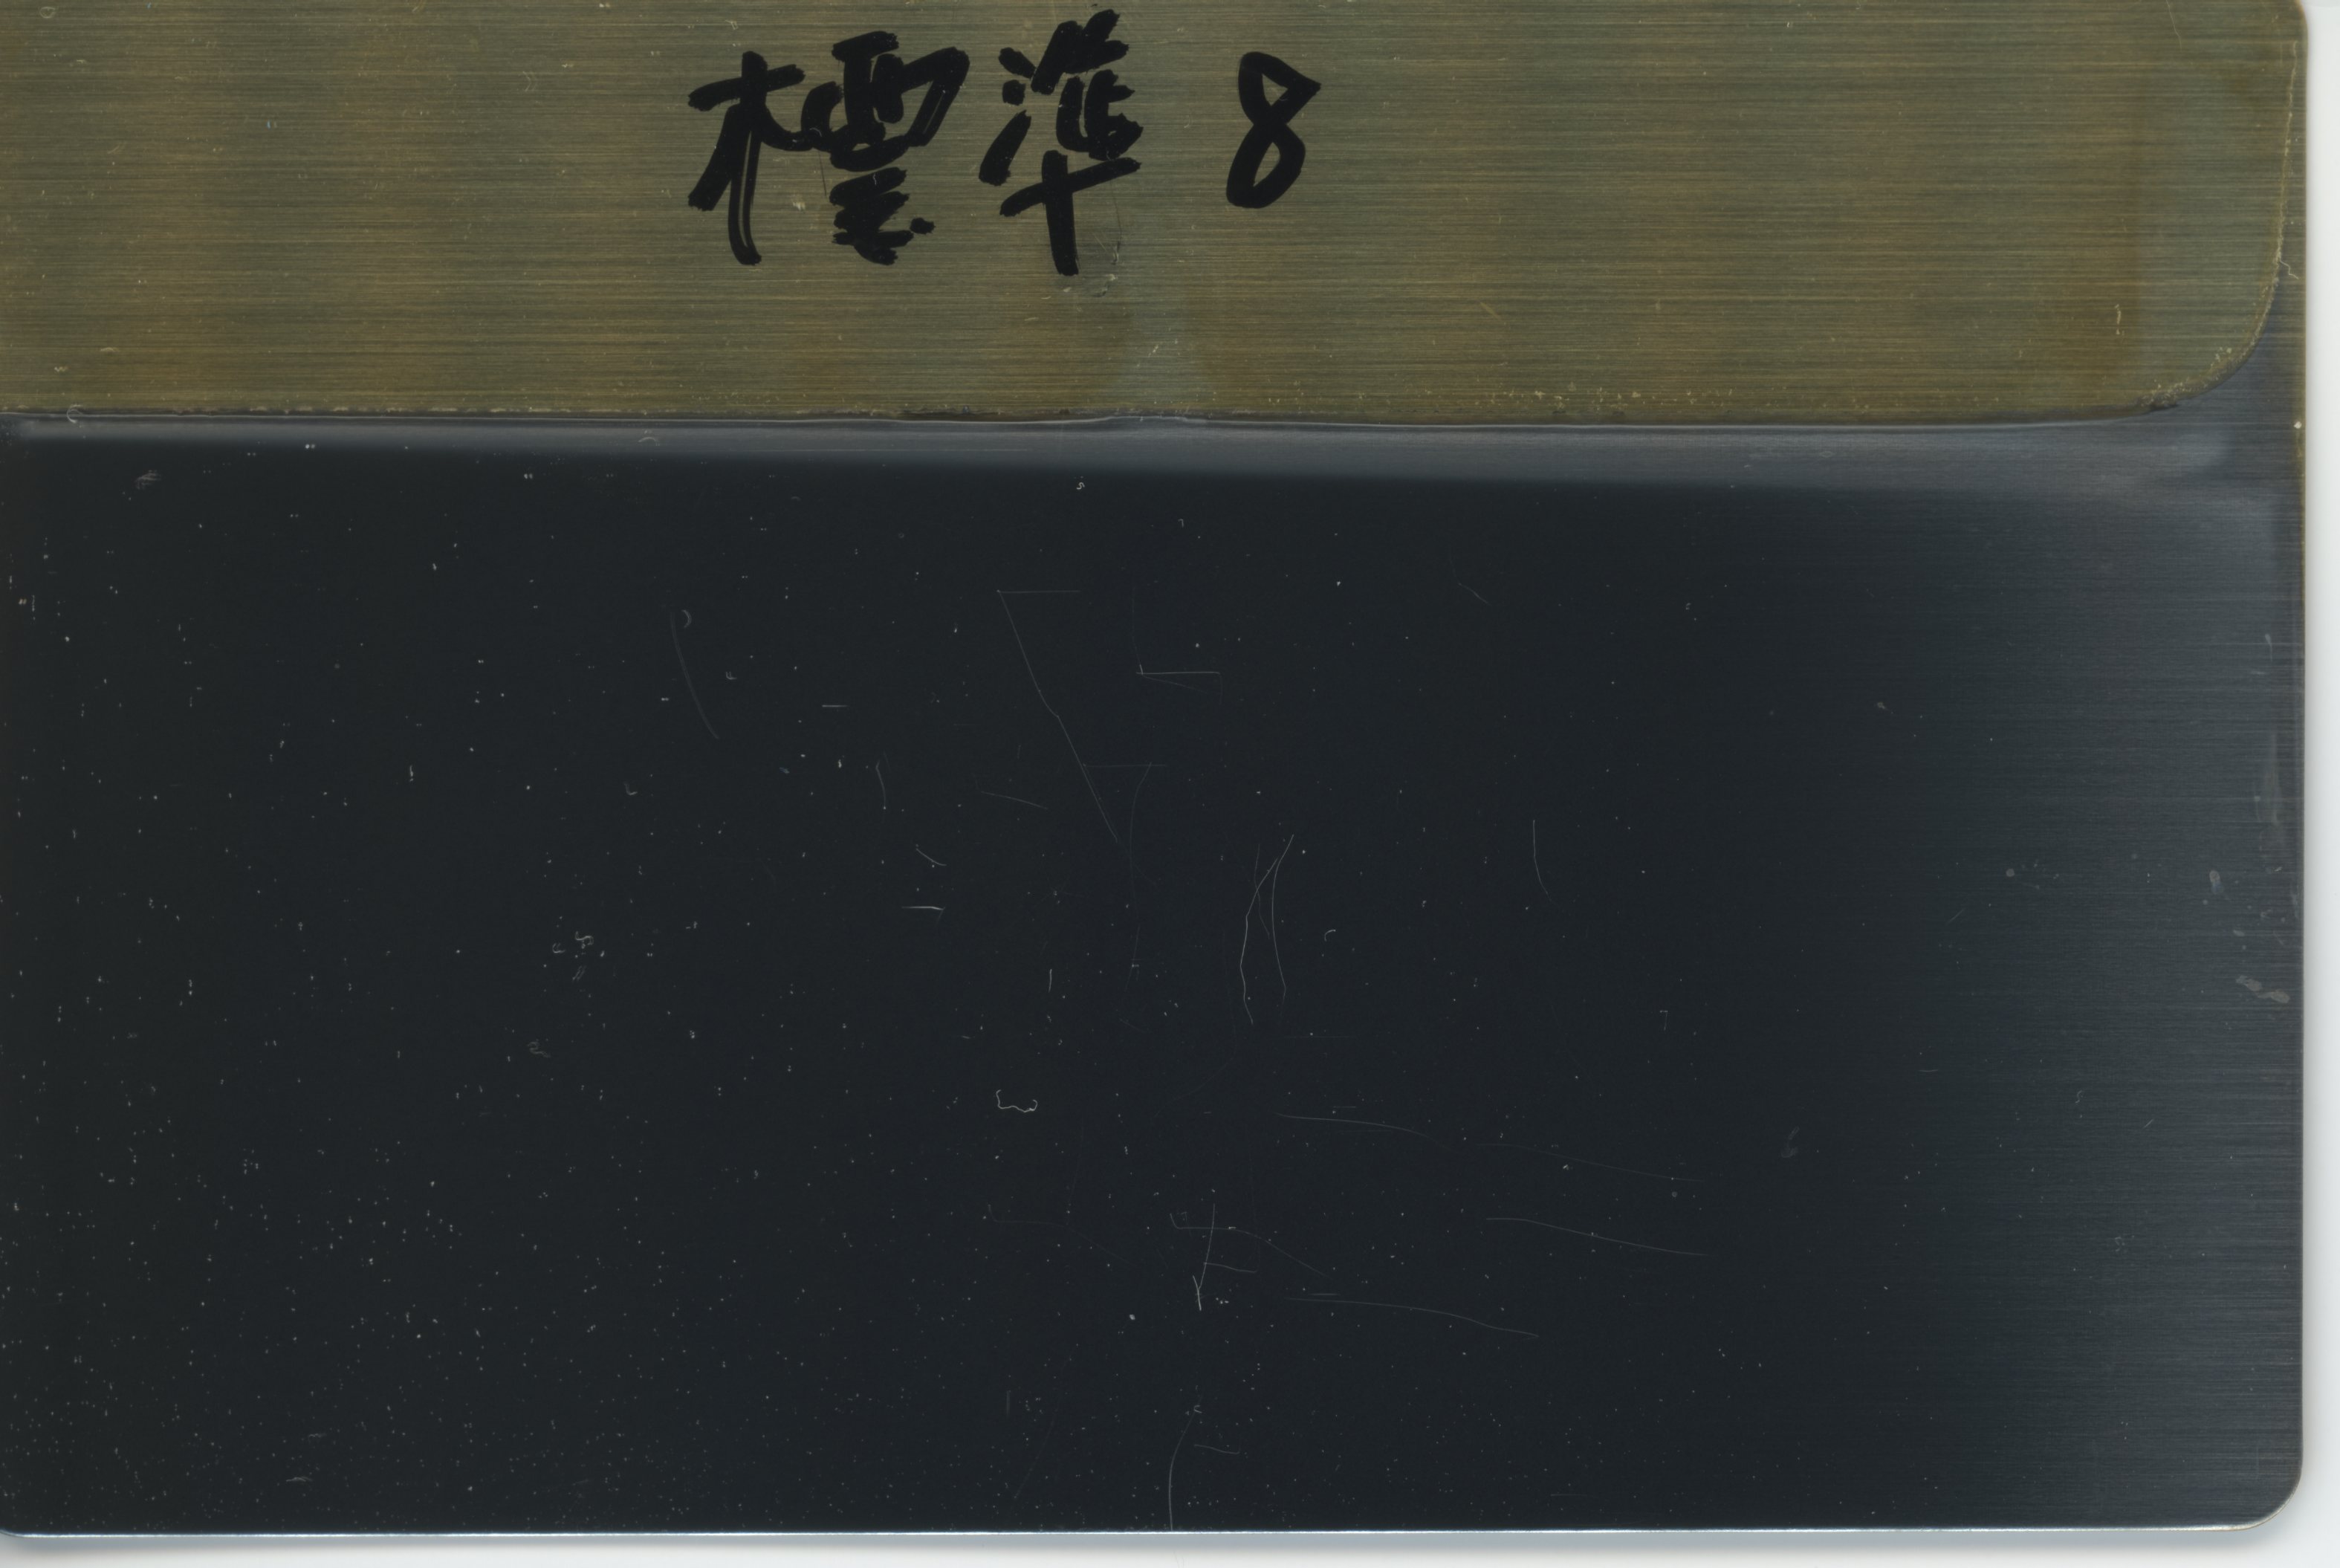 標準 8